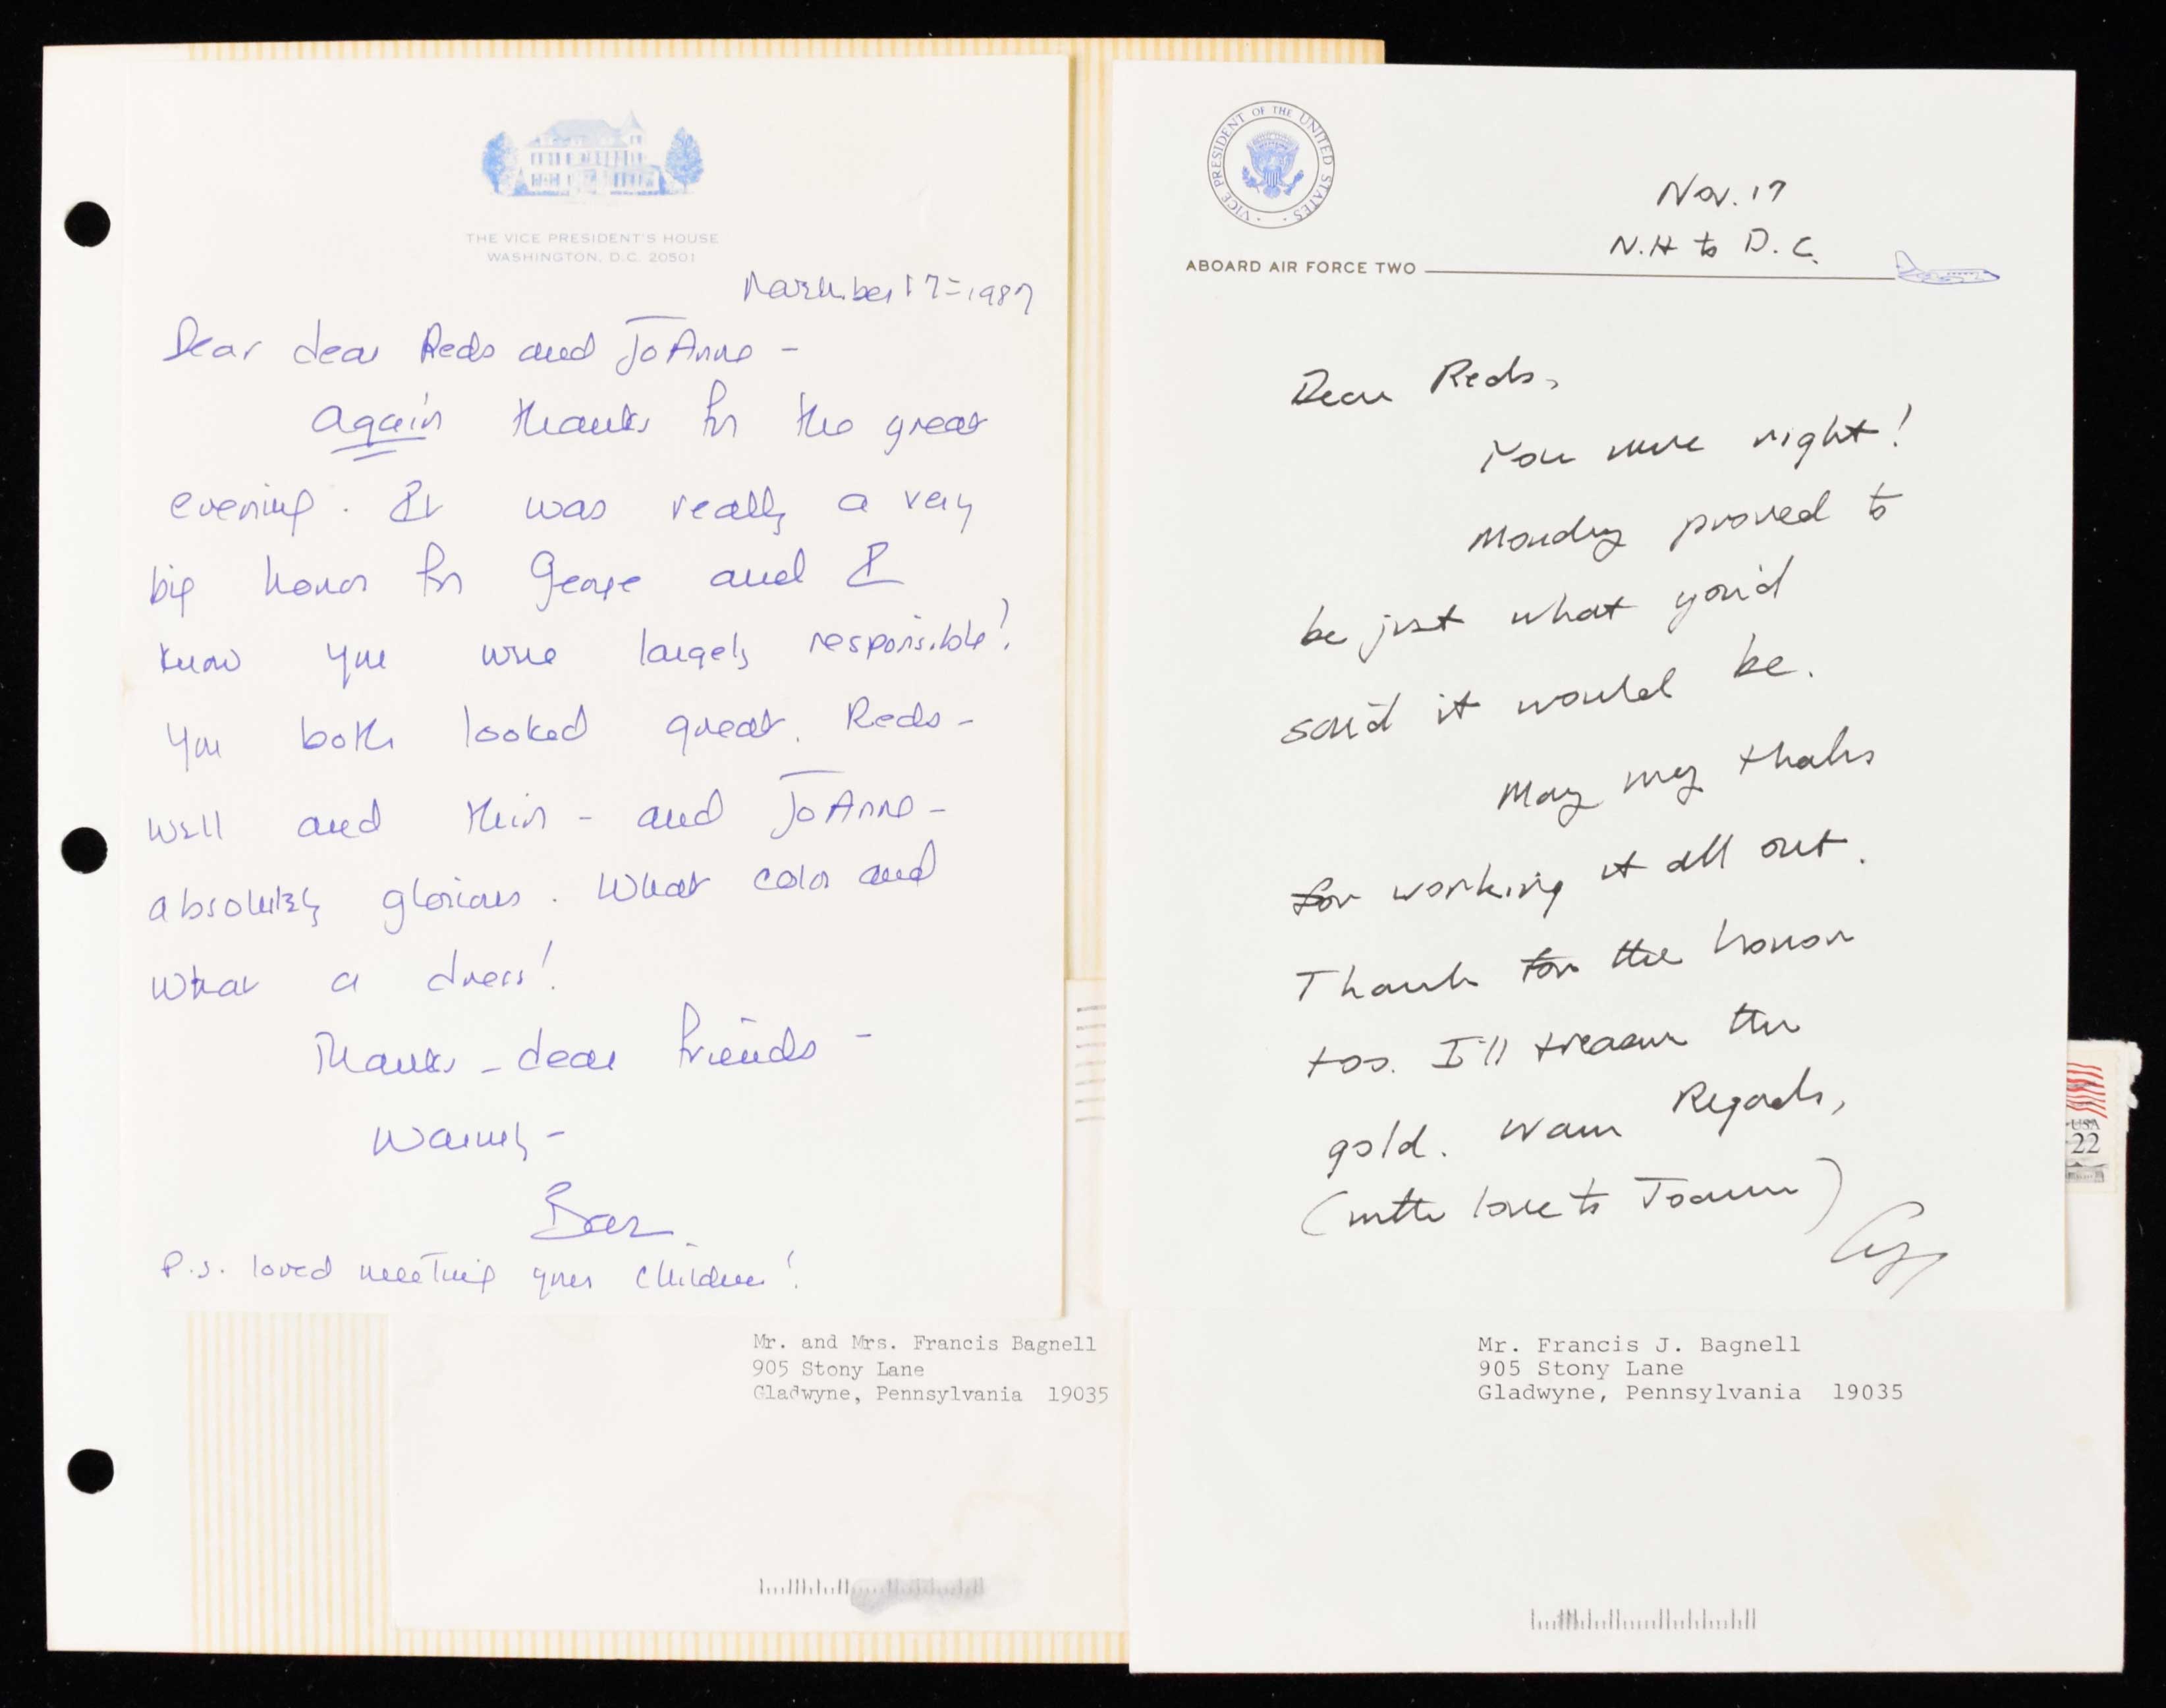 THE VICE PRESIDENT'S HOUSE
WASHINGTON, D.C. 20501
November 17 = 1987
Dear dear Reds and JoAnne -
Again thanks for the great
evening. It was really a very
big honor for George and I
know you were largely responsible!
You both looked great. Reds -
well and thin - and JoAnne -
absolutely glorious. What color and
what a dress!
Thanks - dear friends -
Warmly -
Bar
P.S. loved meeting your children!
VICE PRESIDENT OF THE UNITED STATES
Nov. 17
N.H to D.C.
ABOARD AIR FORCE TWO
Dear Reds,
You were right!
Monday proved to
be just what you'd
said it would be.
May my thaks
for working it all out.
Thank for the honor
too. I'll treasure the
gold. Warm Regards,
(with love to Joanne)
USA
22
Mr. and Mrs. Francis Bagnell
905 Stony Lane
Gladwyne, Pennsylvania 19035
Mr. Francis J. Bagnell
905 Stony Lane
Gladwyne, Pennsylvania 19035